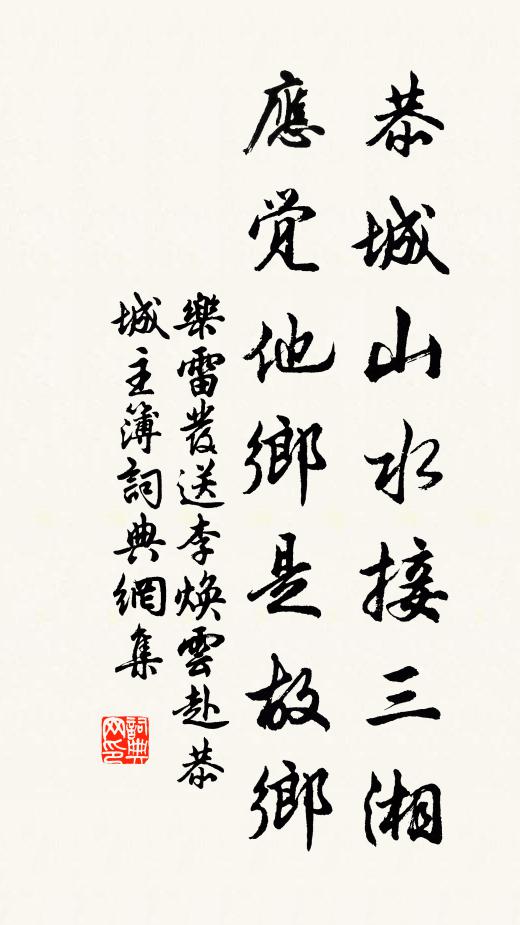 恭城山水接三湘
應覺他鄉是故鄉
樂雷發送李煥雲赴恭
城主簿詞典網集
詞典
网印